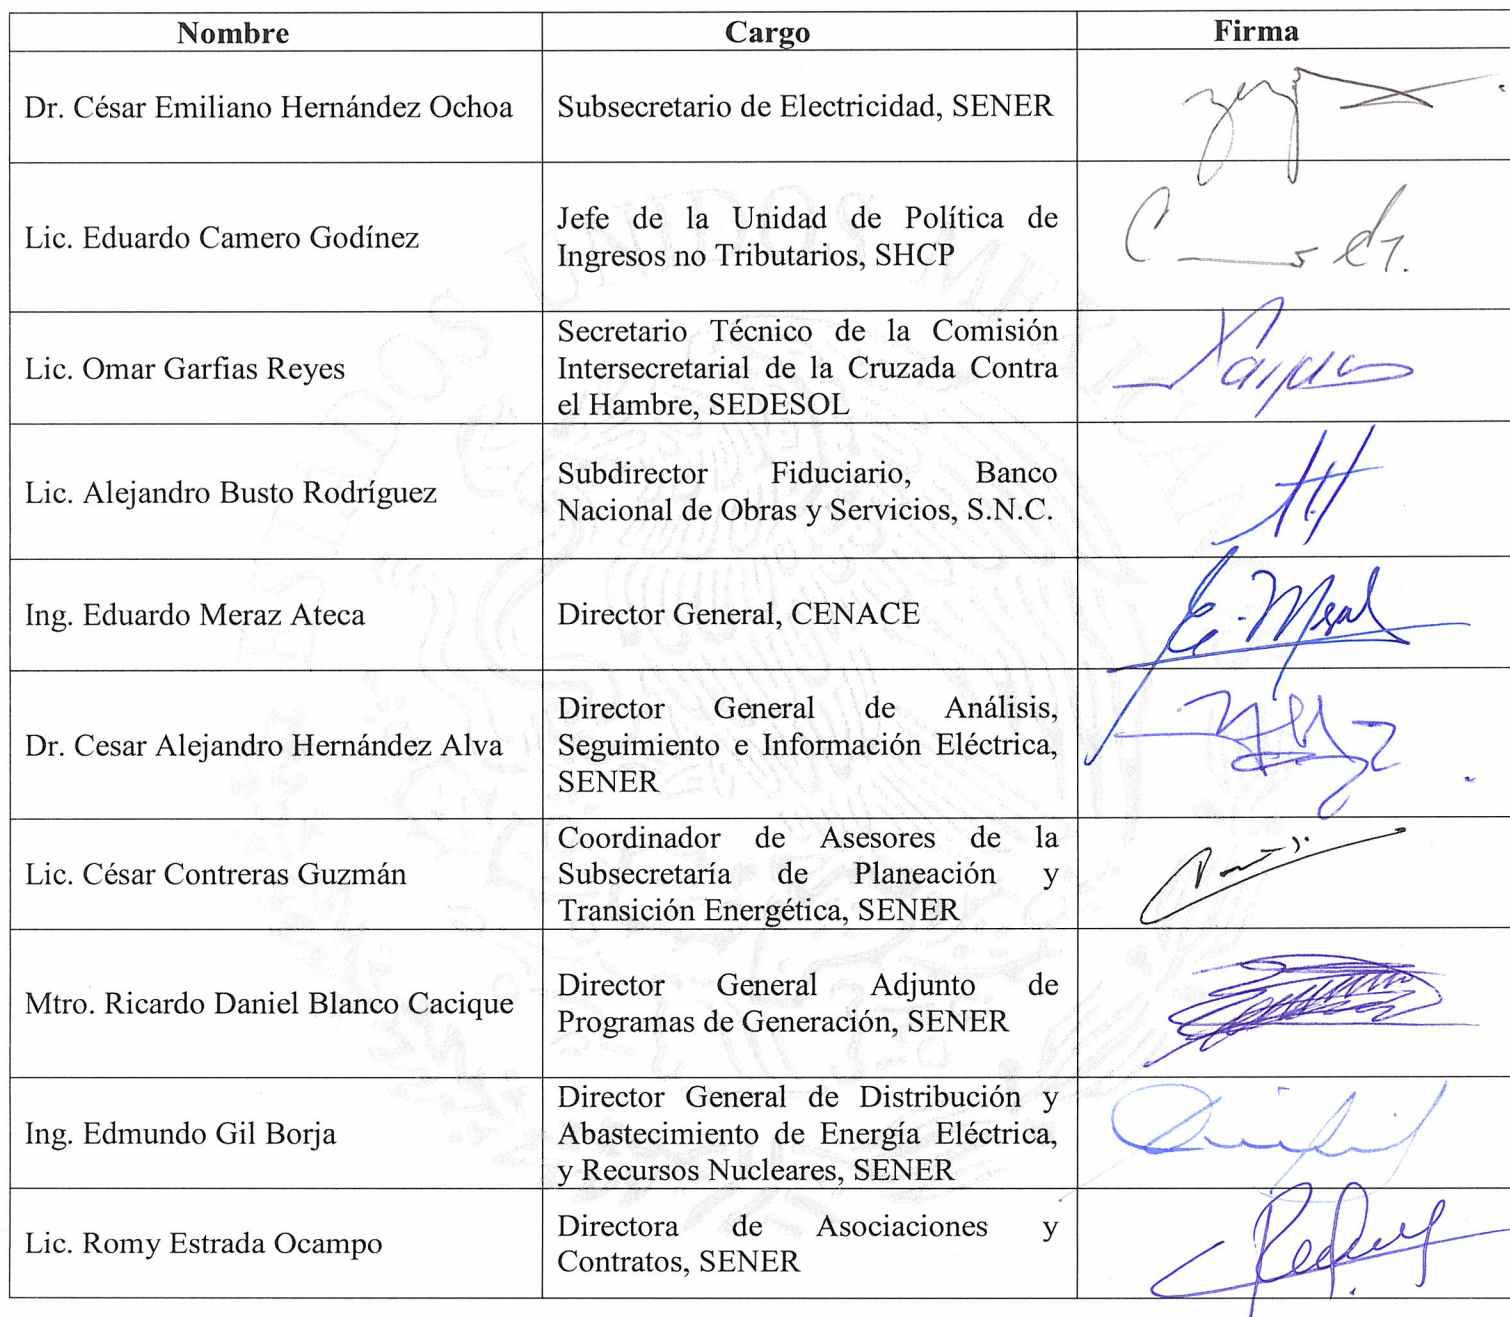 Nombre Cargo Firma
Dr. César Emiliano Hernández Ochoa Subsecretario de Electricidad, SENER
Lic. Eduardo Camero Godínez
Jefe de la Unidad de Política de
Ingresos no Tributarios, SHCP
Lic. Omar Garfias Reyes
Secretario Técnico de la Comisión
Intersecretarial de la Cruzada Contra
el Hambre, SEDESOL
Lic. Alejandro Busto Rodríguez
Subdirector Fiduciario, Banco
Nacional de Obras y Servicios, S.N.C.
Ing. Eduardo Meraz Ateca Director General, CENACE
Dr. Cesar Alejandro Hernández Alva
Director General de Análisis,
Seguimiento e Información Eléctrica,
SENER
Lic. César Contreras Guzmán
Coordinador de Asesores de la
Subsecretaría de Planeación y
Transición Energética, SENER
Mtro. Ricardo Daniel Blanco Cacique
Director General Adjunto de
Programas de Generación, SENER
Ing. Edmundo Gil Borja
Director General de Distribución y
Abastecimiento de Energía Eléctrica,
y Recursos Nucleares, SENER
Lic. Romy Estrada Ocampo
Directora de Asociaciones y
Contratos, SENER
ESTADOS UNIDOS MEXICANOS